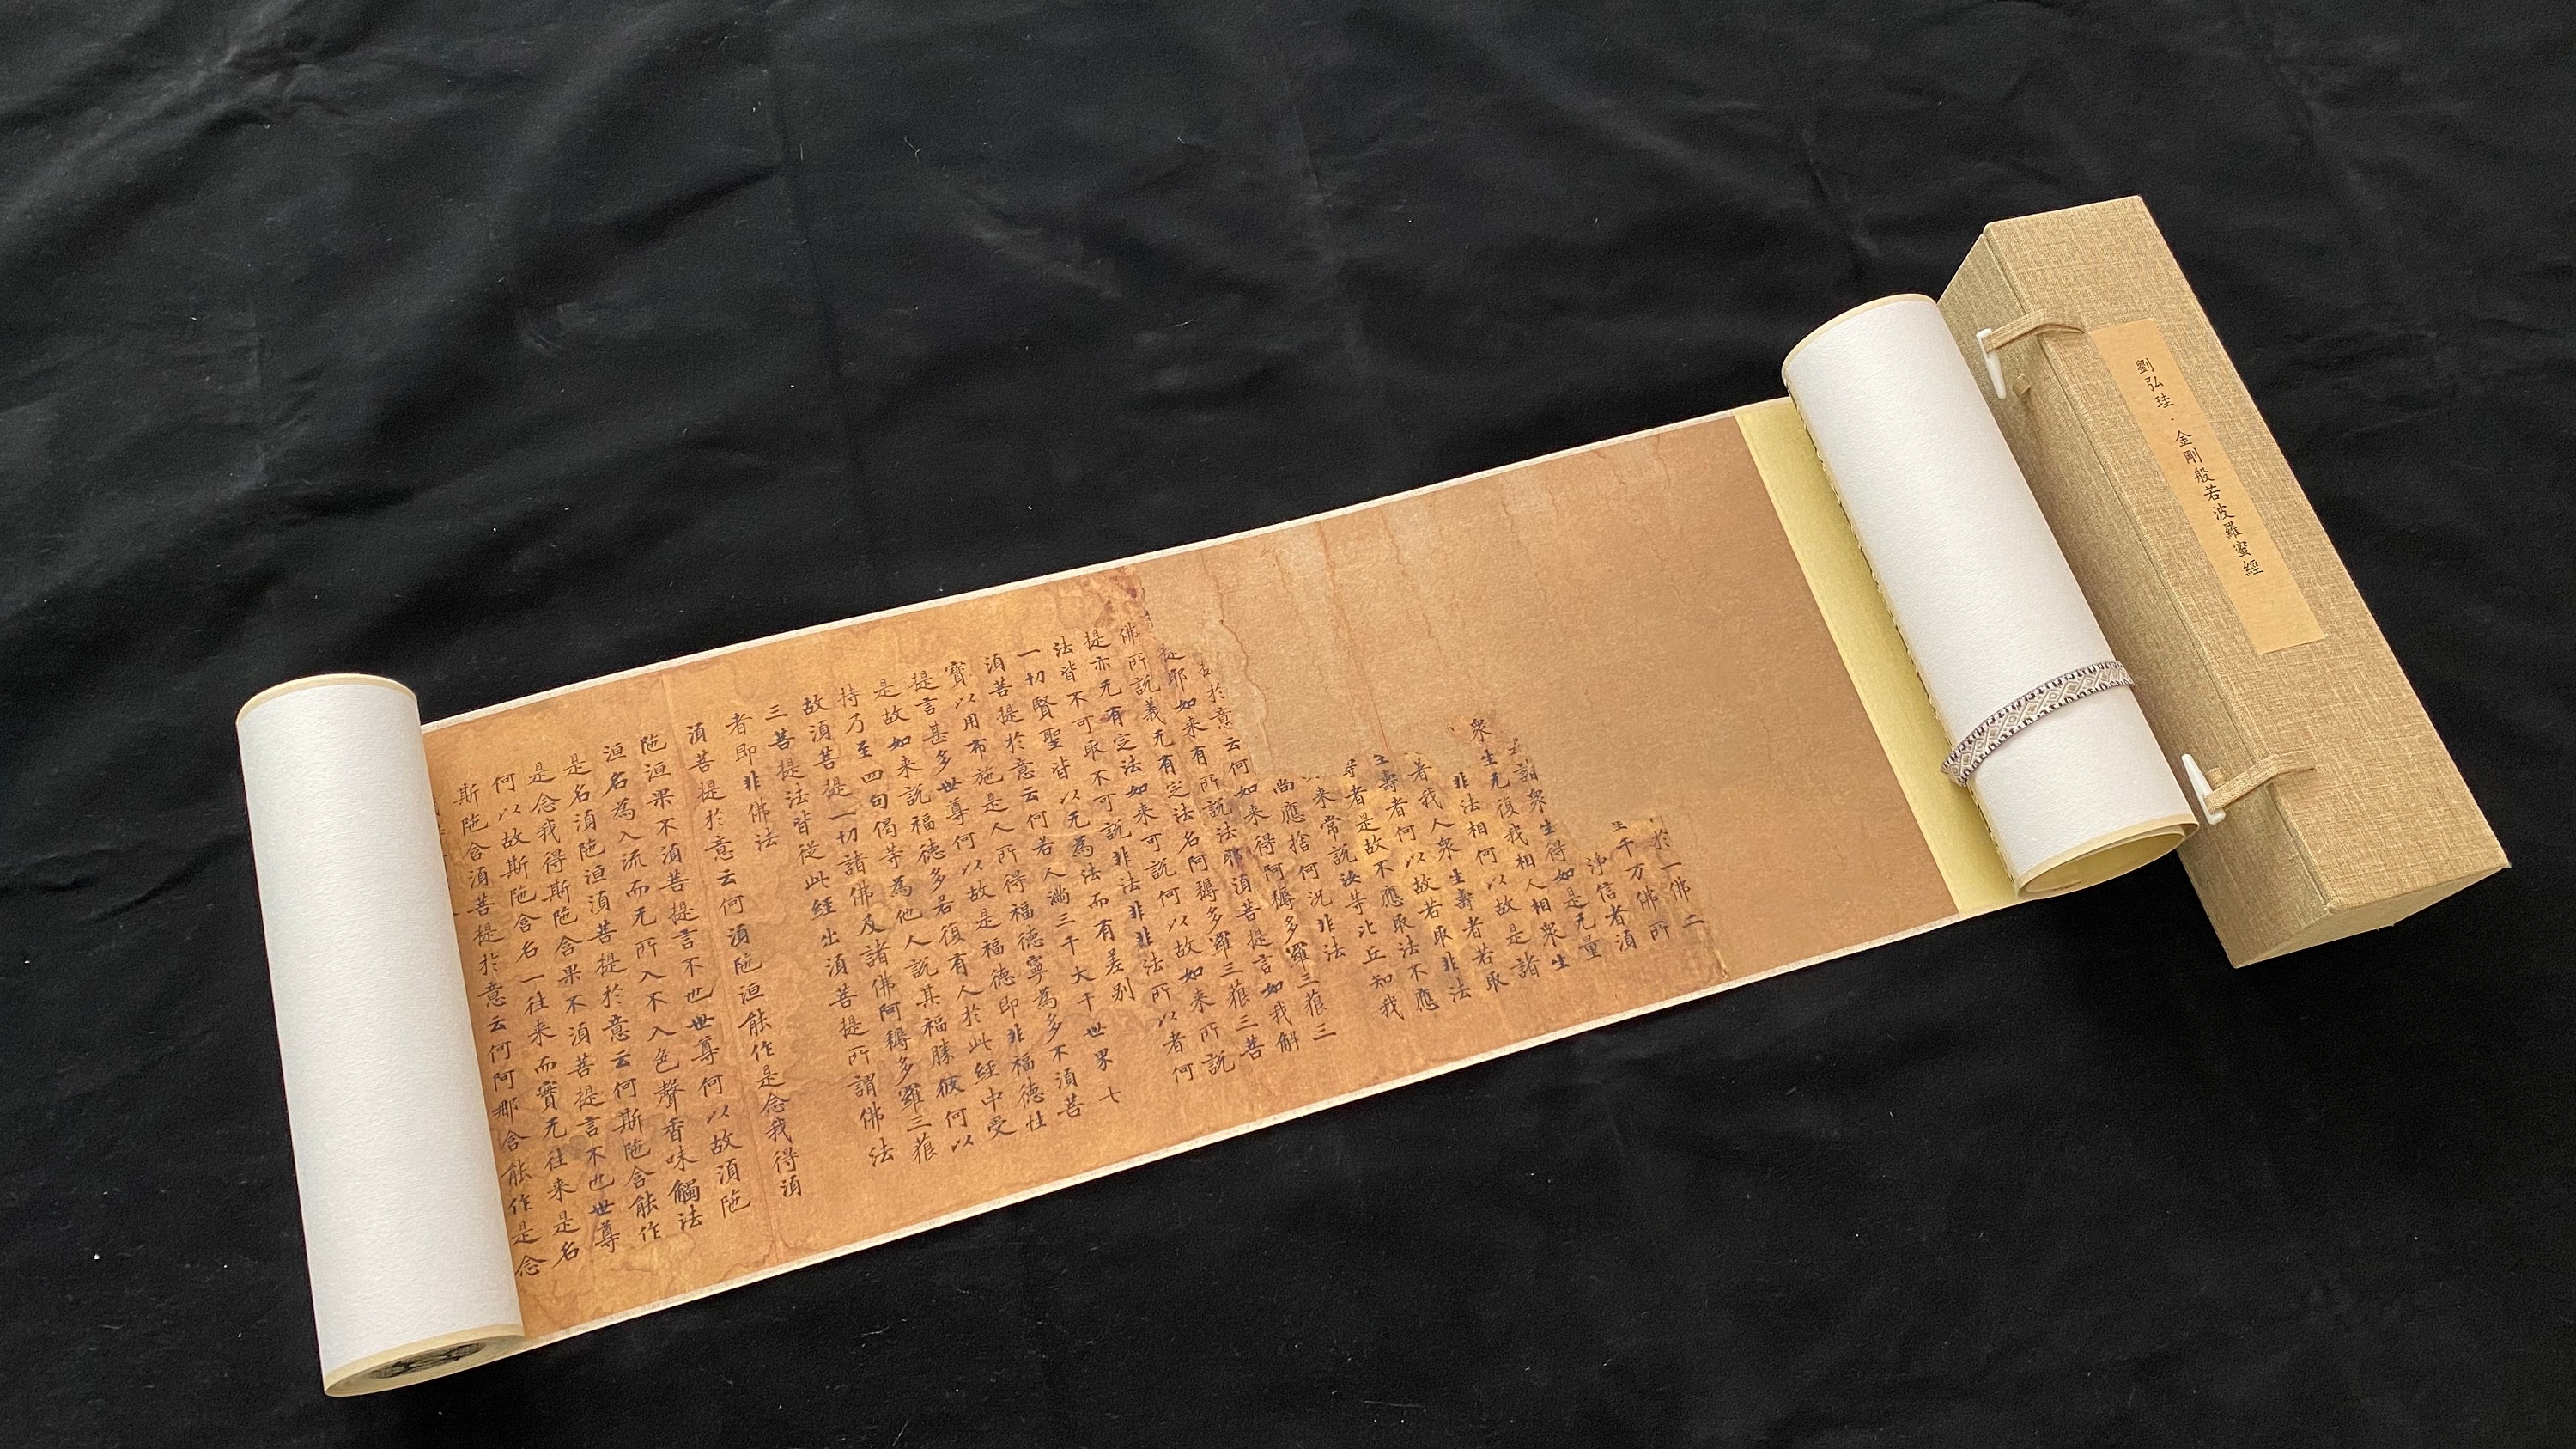 劉弘珪·金剛般若波羅蜜經
於一佛二
千万佛所
淨信者須
諸衆生得如是无量
衆生无復我相人相衆生
非法相何以故是諸
著我人衆生壽者若取
壽者何以故若取非法
者是故不應取法不應
来常說汝等比丘知我
尚應捨何況非法
於意云何如来得阿耨多羅三藐三
耶如来有所說法耶須菩提言如我解
佛所說義无有定法名阿耨多羅三藐三菩
提亦无有定法如来可說何以故如来所說
法皆不可取不可說非法非非法所以者何
一切賢聖皆以无為法而有差別
須菩提於意云何若人滿三千大千世界七
寶以用布施是人所得福德寧為多不須菩
提言甚多世尊何以故是福德即非福德性
是故如来說福德多若復有人於此經中受
持乃至四句偈等為他人說其福勝彼何以
故須菩提一切諸佛及諸佛阿耨多羅三藐
三菩提法皆從此經出須菩提所謂佛法
者即非佛法
須菩提於意云何須陁洹能作是念我得須
陁洹果不須菩提言不也世尊何以故須陁
洹名為入流而无所入不入色聲香味觸法
是名須陁洹須菩提於意云何斯陁含能作
是念我得斯陁含果不須菩提言不也世尊
何以故斯陁含名一往来而實无往来是名
斯陁含須菩提於意云何阿那含能作是念